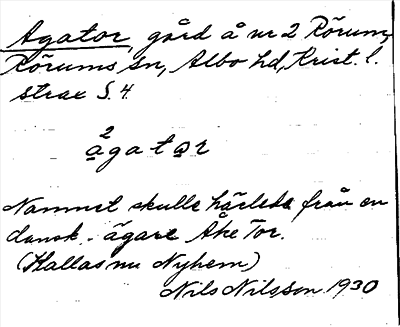 Agator, gård å nr 2 Rörum,
Rörums sn, Albo hd, Krist. l.
strax S. 4.
2
a̲gata̲r
Namnet skulle härleda från en
dansk ägare Åke Tor.
(Kallas nu Nyhem)
Nils Nilsson 1930